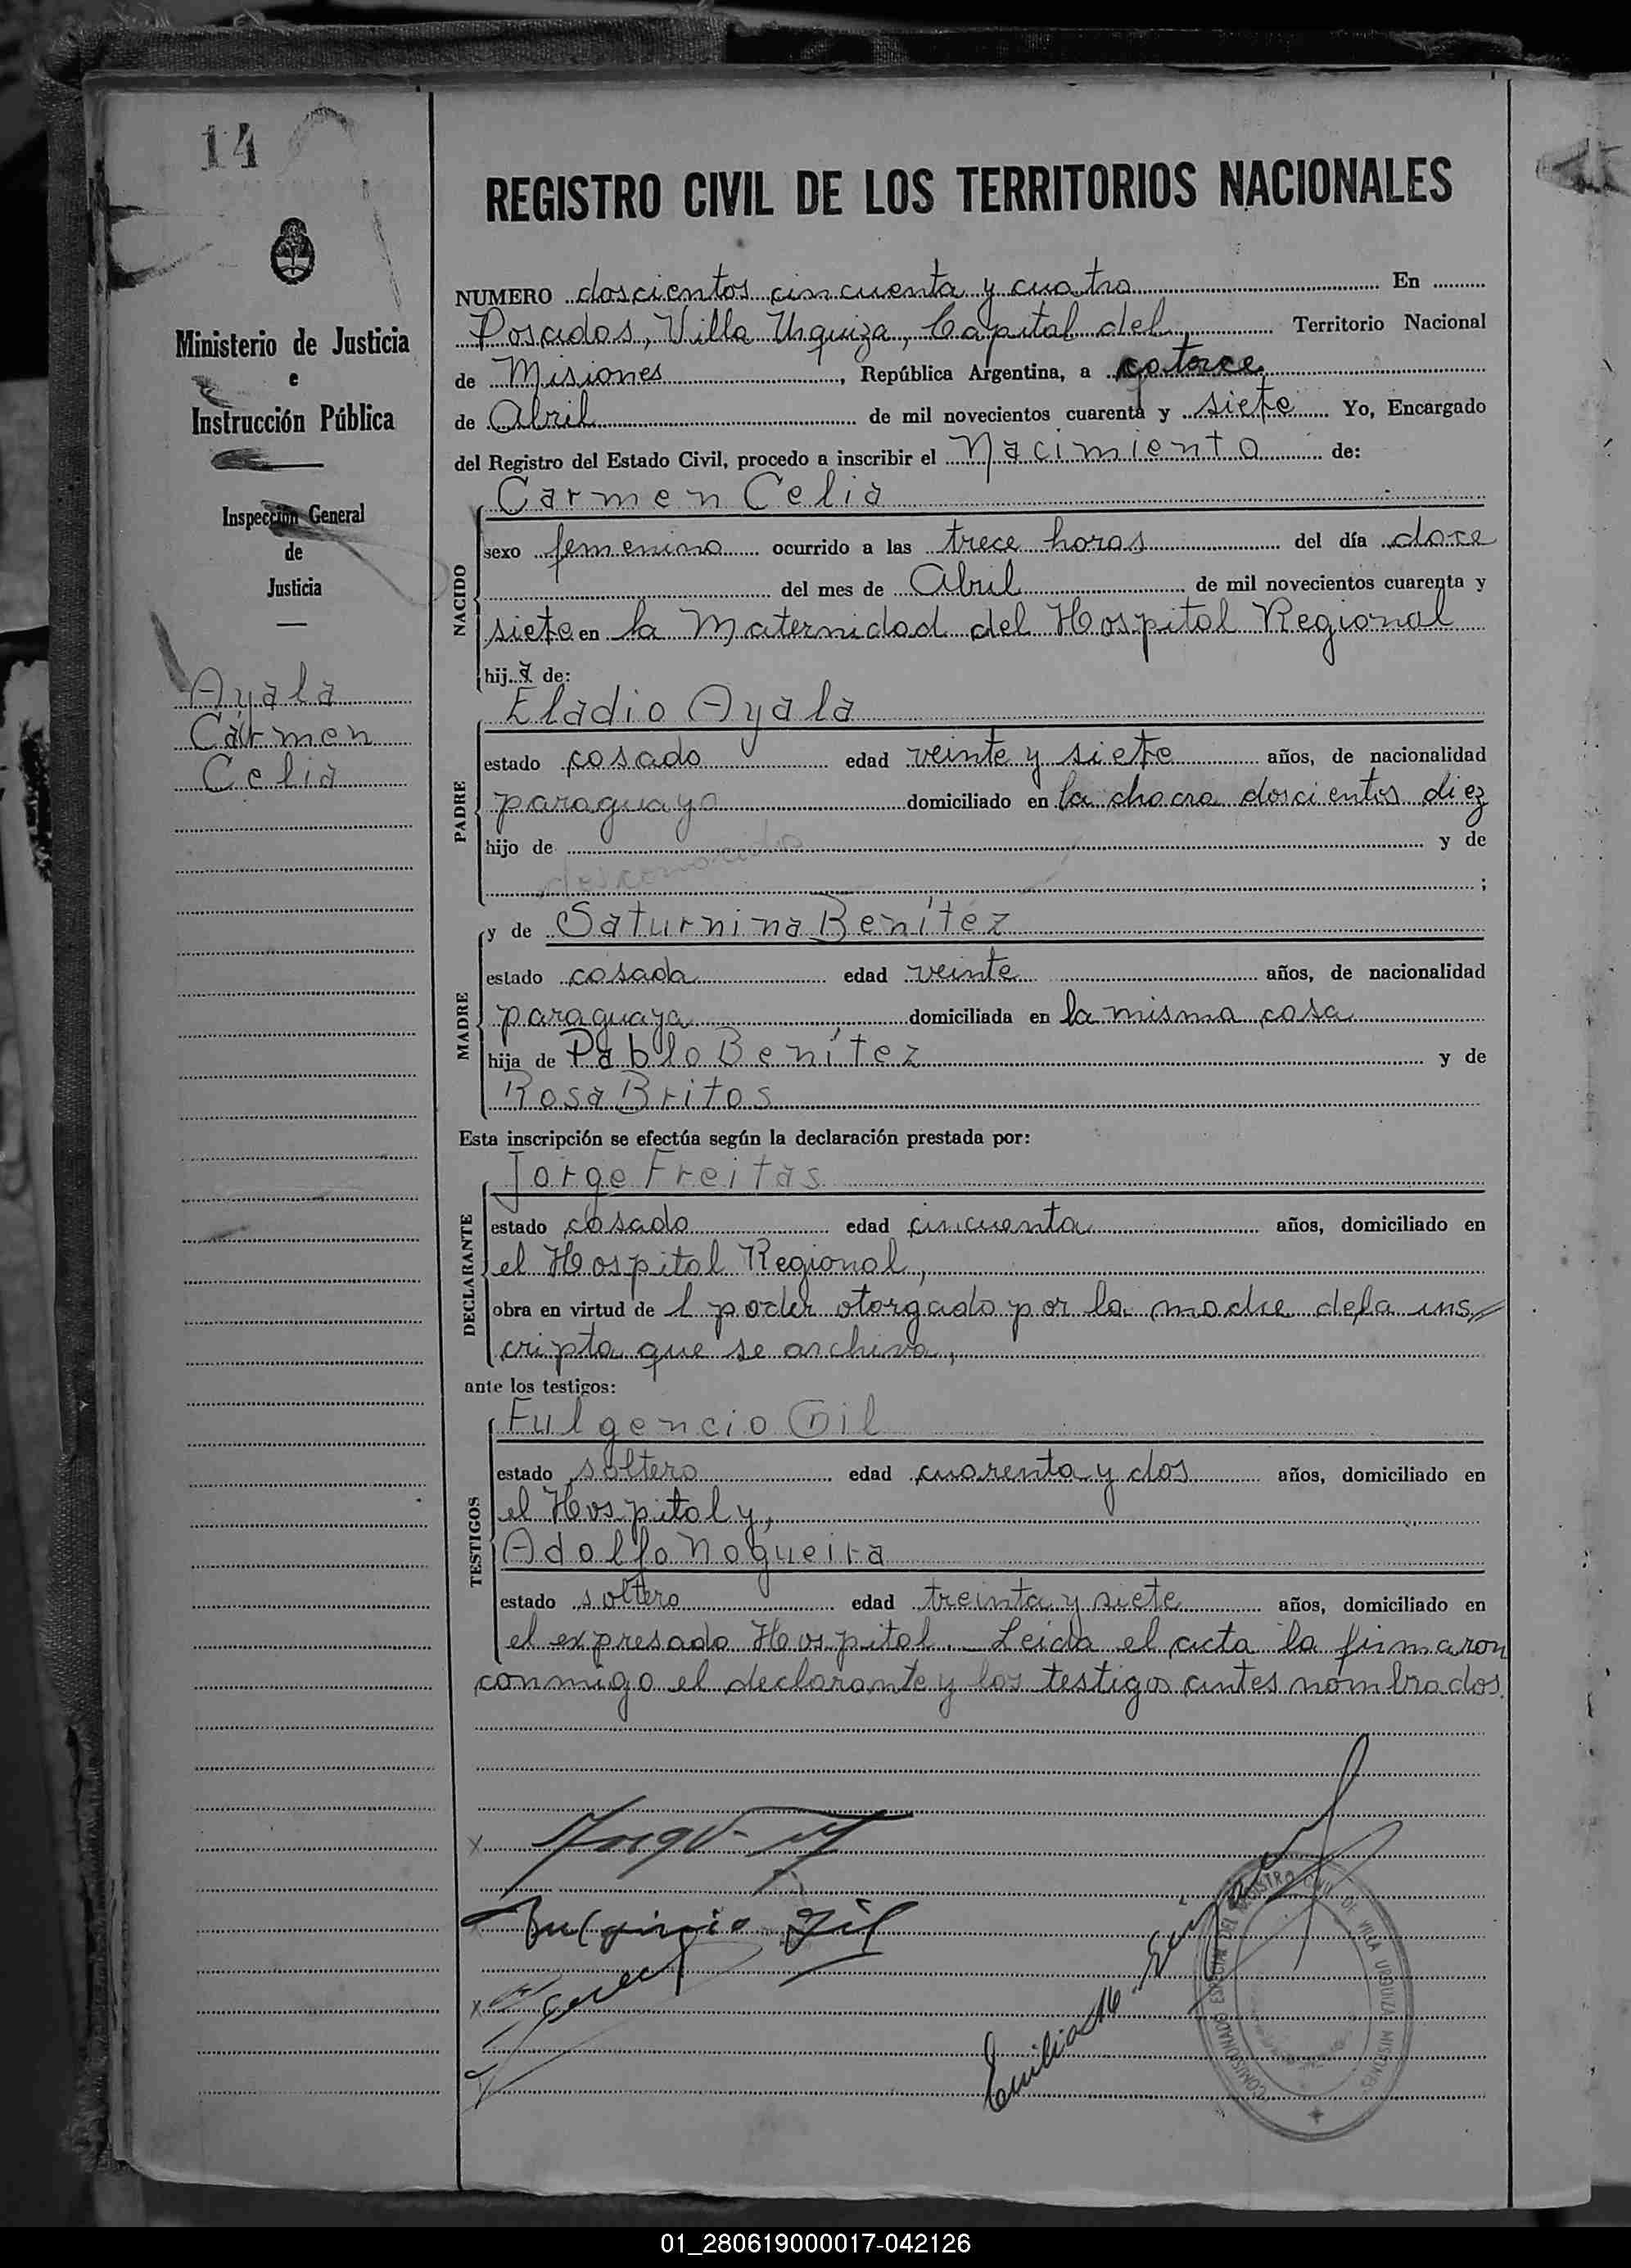 14
REGISTRO CIVIL DE LOS TERRITORIOS NACIONALES
Ministerio de Justicia
e
Instrucción Pública
Inspección General
de
Justicia
Ayala
Carmen
Celia
NUMERO doscientos cincuenta y cuatro En
Posadas, Villa Urquiza, Capital del Territorio Nacional
de Misiones, República Argentina, a catorce
de Abril de mil novecientos cuarenta y siete Yo, Encargado
del Registro del Estado Civil, procedo a inscribir el Nacimiento de:
NACIDO
Carmen Celia
sexo femenino ocurrido a las trece horas del día doce
del mes de Abril de mil novecientos cuarenta y
siete en la Maternidad del Hospital Regional
hija de:
PADRE
Eladio Ayala
estado casado edad veinte y siete años, de nacionalidad
paraguaya domiciliado en la chacra doscientos diez
hijo de y de
desconocido
;
MADRE
y de Saturnina Benítez
estado casada edad veinte años, de nacionalidad
paraguaya domiciliada en la misma casa
hija de Pablo Benítez y de
Rosa Britos
Esta inscripción se efectúa según la declaración prestada por:
DECLARANTE
Jorge Freitas
estado casado edad cincuenta años, domiciliado en
el Hospital Regional,
obra en virtud de l poder otorgado por la madre de la ins
cripta que se archiva,
ante los testigos:
TESTIGOS
Fulgencio Gil
estado soltero edad cuarenta y dos años, domiciliado en
el Hospital y,
Adolfo Nogueira
estado soltero edad treinta y siete años, domiciliado en
el expresado Hospital. Leida el acta la firmaron
conmigo el declarante y los testigos antes nombrados.
Jorge
Fulgencio Gil
Emilia
COMISIONADO ESPECIAL DEL REGISTRO CIVIL DE VILLA URQUIZA MISIONES
01_280619000017-042126